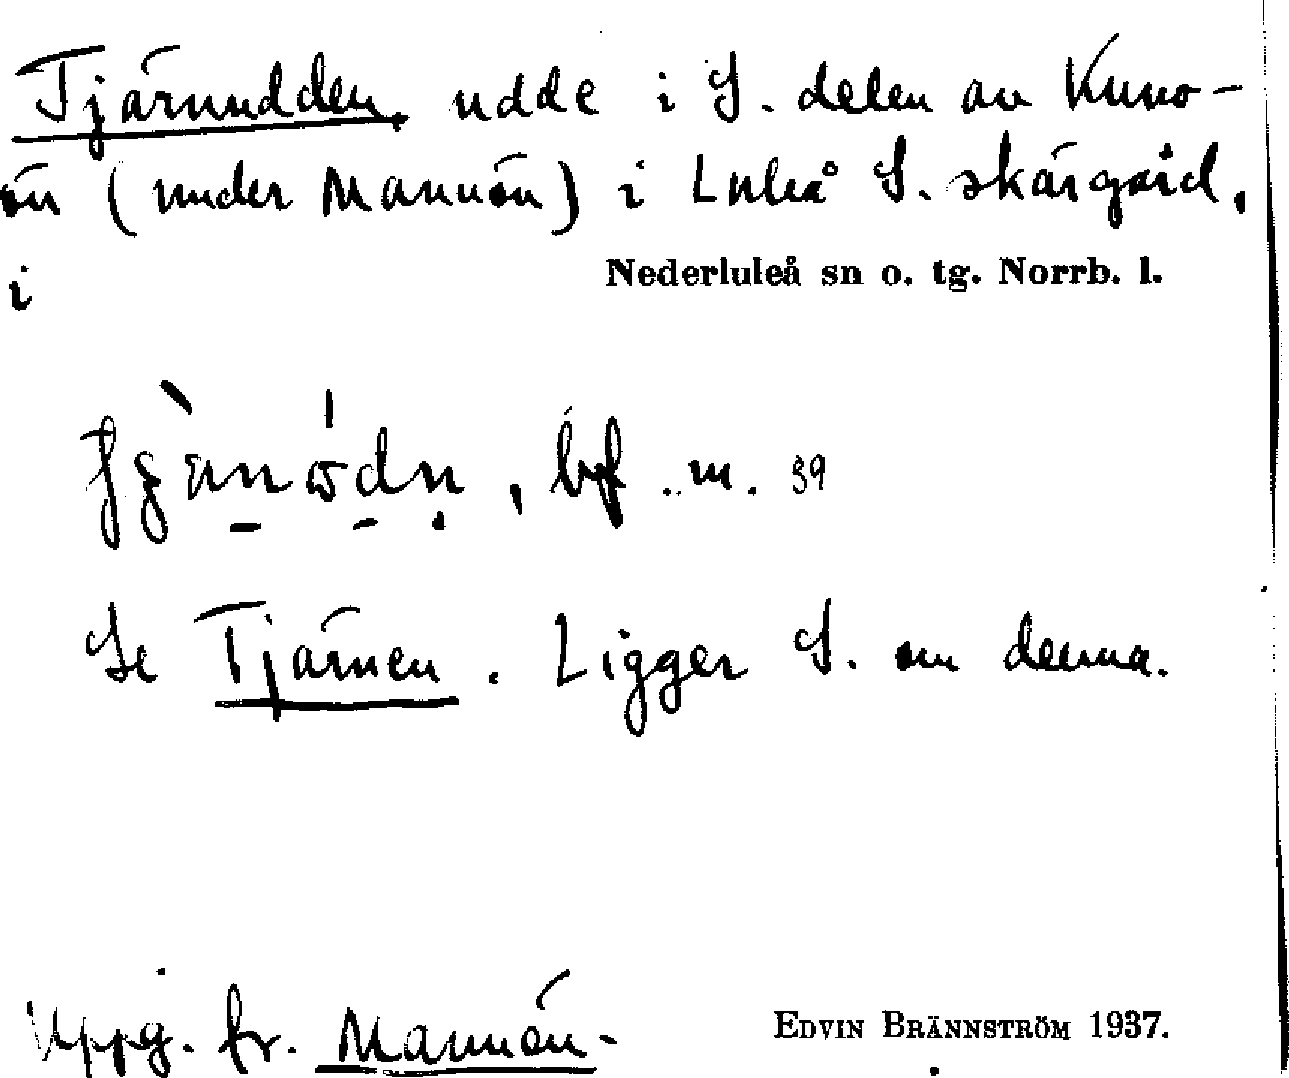 Tjärnudden, udde i S. delen av Kuno-
ön (under Mannön) i Luleå S. skärgård,
i Nederluleå sn o. tg. Norrb. l.
, bf. m. 39
Se Tjärnen. Ligger S. om denna.
Uppg. fr. Mannön. EDVIN BRÄNNSTRÖM 1937.